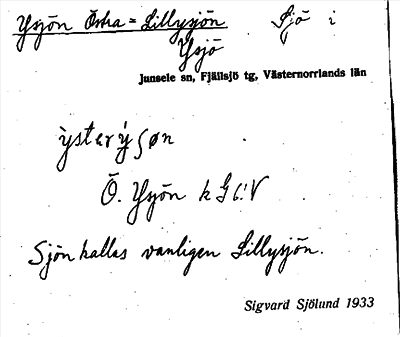 Ysjön Östra = Lillysjön Sjö i
Ysjö
Junsele sn, Fjällsjö tg, Västernorrlands län
Ö. Ysjön k G 6: V
Sjön kallas vanligen Lillysjön.
Sigvard Sjölund 1933